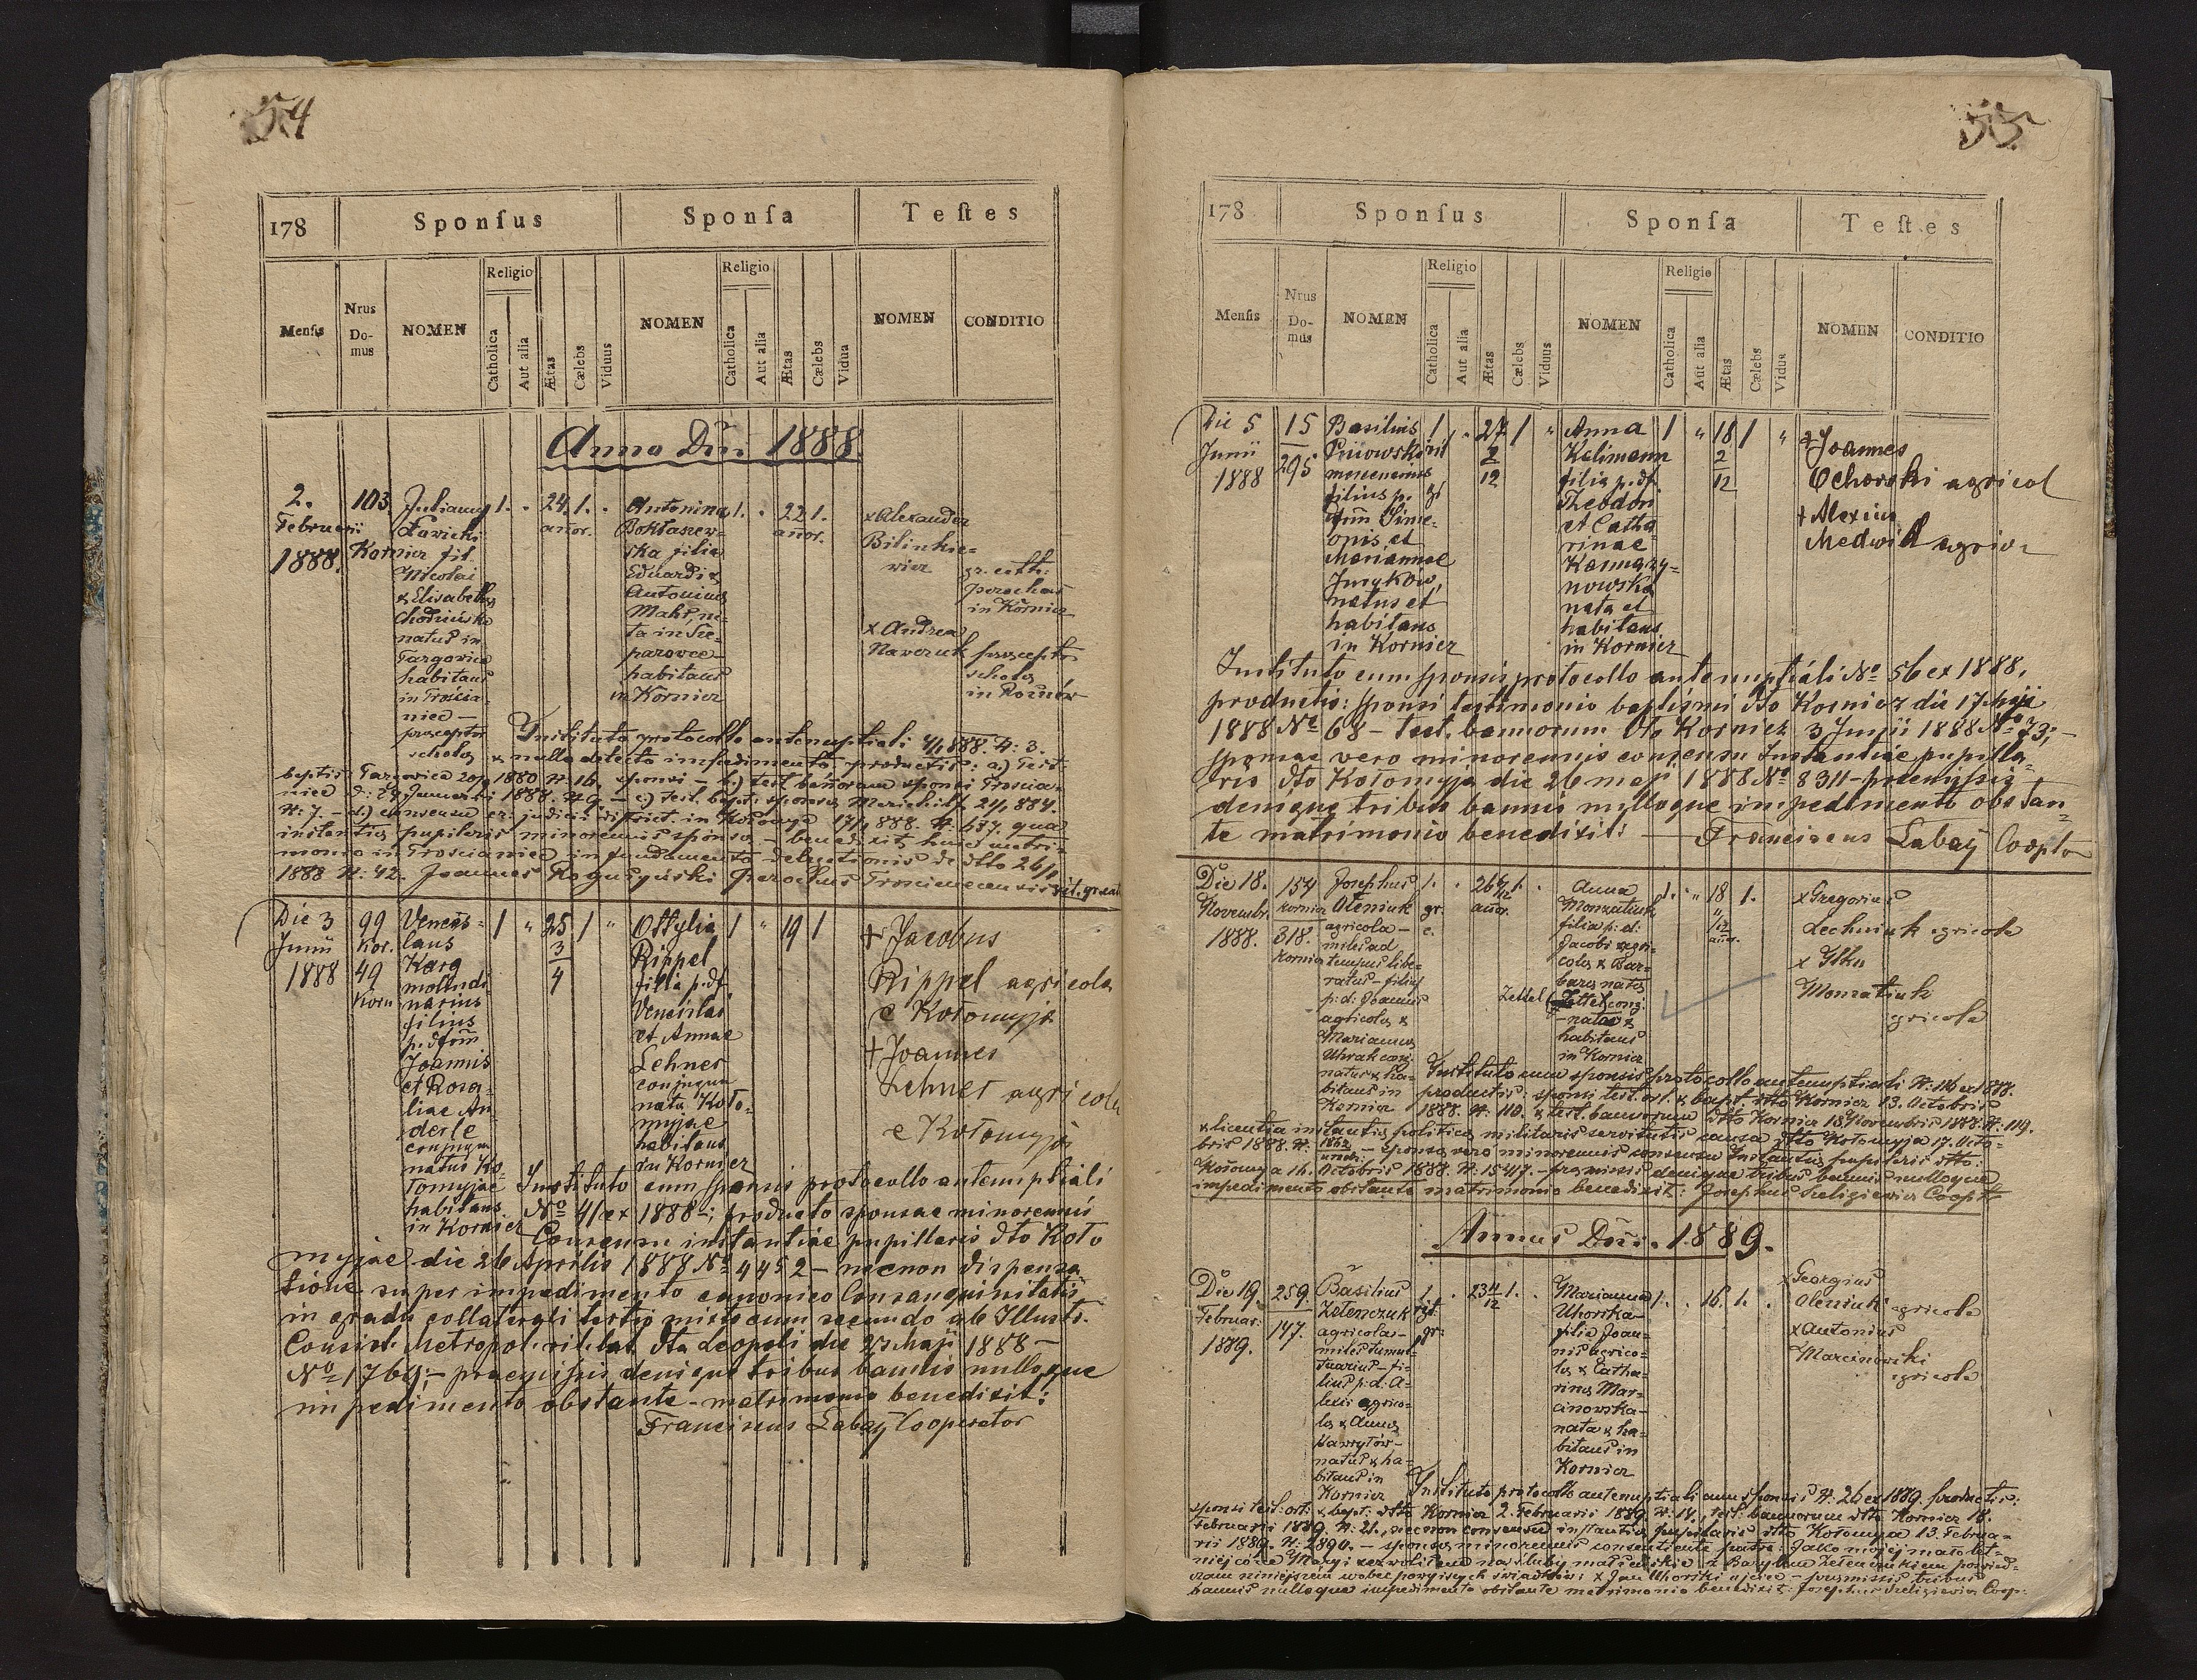 54
178 Sponſus Sponſa Teſtes
Menſis Nrus Do-mus NOMEN Religio Catholica Aut alia Ætas Cælebs Viduus NOMEN Religio Catholica Aut alia Ætas Cælebs Vidua NOMEN CONDITIO
Anno Dni 1888.
2. Februarii 1888.
103 Kornicz
Julianus
Ławicki
fil.
Nicolai
& Elisabetha
natus in
Targowica
habitans
in Trościa-
niec –
praeceptor
schola
1. 24 1.
anor.
Antonina
ska filia
Eduardi &
Antonina
ta in Sie-
habitans
in Kornicz
1. 22 1.
anor.
x Alexander
Bilinkie-
wicz
gr. cath:
parochus
in Kornicz
x Andreas
Nawczuk praeceptor
schola
in Rożnów
Instituto protocollo antenuptiali 4/1 888. N: 3.
& nullo detecto impedimento productis: a.) Test.
baptis. Targowica 20/9 1880 N. 16. sponsi – b.) test. bañorum sponsi Troscia-
niec d: 29 Januarii 1888. N 9. – c.) test. bapt. sponsa
N: 7. – d.) consensu judicii district. in Kołomyja 17/1 888. N: 637. qua
instantia pupilaris minorennis sponsa – benedixit huic matri-
monio in Troscianiec in fundamento delegationis de dtto 26/1
1888 N: 42. Joannes Parochus rit. graeci
Die 3 Junii 1888
99 Kor.
49 Korn
Vences-
laus
Karg
molindi
narius
filius
p. dfm
Joannis
et Rosa-
liae An
derle
conjugum
natus Ko-
łomyjae
habitans
in Kornicz
1 " 25 3/4 1 "
Ottylia
Rippel
filia p. df.
Venceslai
et Annae
Lehner
conjugum
nata Koło-
myjae
habitans
in Kornicz
1 " 19 1
† Jacobus
Rippel agricola
e Kołomyja
† Joannes
Lehner agricola
e Kołomyja
Instituto cum sponsis protocollo antenuptiali
No 41 ex 1888 -; producto sponsae minorennis
Consensu instantiae pupillaris dto Koło
myjae die 26 Aprilis 1888 No 4452 – necnon dispensa
tione super impedimento canonico Consanguinitatis
in gradu collaterali tertio mixto cum secundo ab Illustr.
Consist. Metropol. rit. lat. dta Leopoli die Maji 1888 –
No 1764; – praemissis denique tribus bannis nulloque
impedimento obstante – matrimonio benedixit:
Franciscus Łabaÿ Cooperator
55
178 Sponſus Sponſa Teſtes
Menſis Nrus Do-mus NOMEN Religio Catholica Aut alia Ætas Cælebs Viduus NOMEN Religio Catholica Aut alia Ætas Cælebs Vidua NOMEN CONDITIO
Die 5 Junii 1888
15
295
Basilius
filius p.
dfm Sime-
onis et
Mariannae
natus et
habitans
in Kornicz
1 rit gr " 27 2/12 1 "
Anna
Kalimann
filia p. df.
Theodori
et Catha
rinae
nowska
nata et
habitans
in Kornicz
1 " 18 2/12 1 "
† Joannes
Ochorski agricol
† Alexius
Medwid agrico-
Instituto cum sponsis protocollo antenuptiali No 56 ex 1888,
productis: sponsi testimonio baptismi dto Kornicz die 17 Maji
1888 No 68 – test. bannorum dto Kornicz 3 Junii 1888 No 73; –
sponsae vero minorennis consensu Instantiae pupilla-
ris dto Kołomyja die 26 maji 1888 No 8311 – praemissis
denique tribus bannis nulloque impedimento obstan-
te matrimonio benedixit: – Franciscus Łabaÿ Coopter
Die 18. Novembr. 1888.
154 Kornicz
318. Kornicz
Josephus
Oleniuk
agricola –
miles ad
tempus libe-
ratus – filius
p: d: Joannis
agricola &
Marianna
Uhrak conj.
natus & ha-
bitans in
Kornicz
1. gr. c. . 26 1.
anor.
Anna
filia p: d:
Jacobi agri-
cola & Bar-
bara nata
Zettel conj.
nata &
habitans
in Kornicz
1. " 18 1.
anor.
x Gregorius
Lechniuk agricola
x Ilko
Monzatiuk
agricola
Instituto cum sponsis protocollo antenuptiali N: 116 ex 1888.
productis: sponsi test. ort. & bapt. dtto Kornicz 13. Octobris
1888. N: 110. & test. bannorum dtto Kornicz 18 Novembris 1888. N: 119.
& licentia instantia politica militaris servitutis causa dtto Kołomyja 17. Octo-
bris 1888. N: 1862 – sponsa vero minorennis consensu Instantia pupilaris dtto:
Kołomyja 16. Octobris 1888. N: 15417. – praemissis denique tribus bannis nulloque
impedimento obstante matrimonio benedixit: Josephus Szeligiewicz Coopt.
Annus Dni. 1889.
Die 19. Februar. 1889.
259.
147.
Basilius
Zełenczuk
agricola –
miles tumul-
tuarius – fi-
lius p: d: A-
lexii agrico-
la & Anna
Hawryłów –
natus & ha-
bitans in
Kornicz
1. rit: gr: . 23 4/12 1. .
Marianna
Uhorska –
filia Joan-
nis agrico-
la & Catha-
rina Mar-
cinowska –
nata & ha-
bitans in
Kornicz
1. . 16. 1. .
x Georgius
Oleniuk agricola
x Antonius
Marcinowski
agricola
Instituto protocollo antenuptiali cum sponsis N: 26 ex 1889. productis:
sponsi test: ort: & bapt: dtto Kornicz 2. Februarii 1889. N: 14., test: bannorum dtto Kornicz 18.
Februarii 1889. N: 21., necnon consensu instantia pupilaris dtto Kołomyja 13. Februa-
rii 1889. N: 2890. – sponsa minorennis consentiente patre: Jako mojej małolet-
niej córce Maryi zezwoliłem na śluby małżeńskie z Bazylim Zełenczukiem powied-
czam niniejszem wobec powyższych świadków: x Jan Uhorski ojciec – praemissis tribus
bannis nulloque impedimento obstante matrimonio benedixit: Josephus Szeligiewicz Coop: